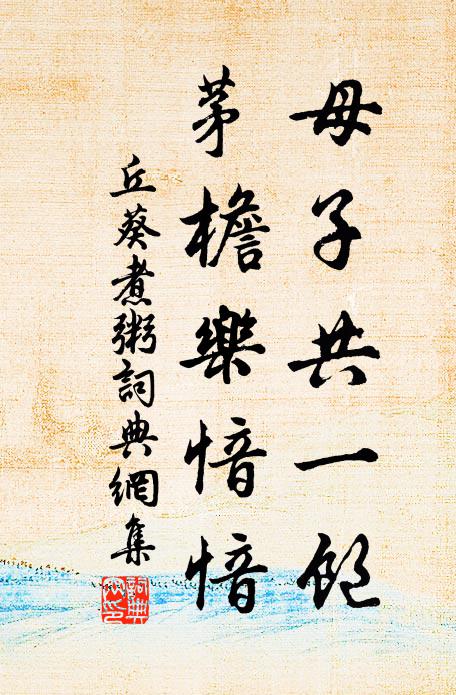 母子共一飽
茅檐樂愔愔
丘葵煮粥詞典網集